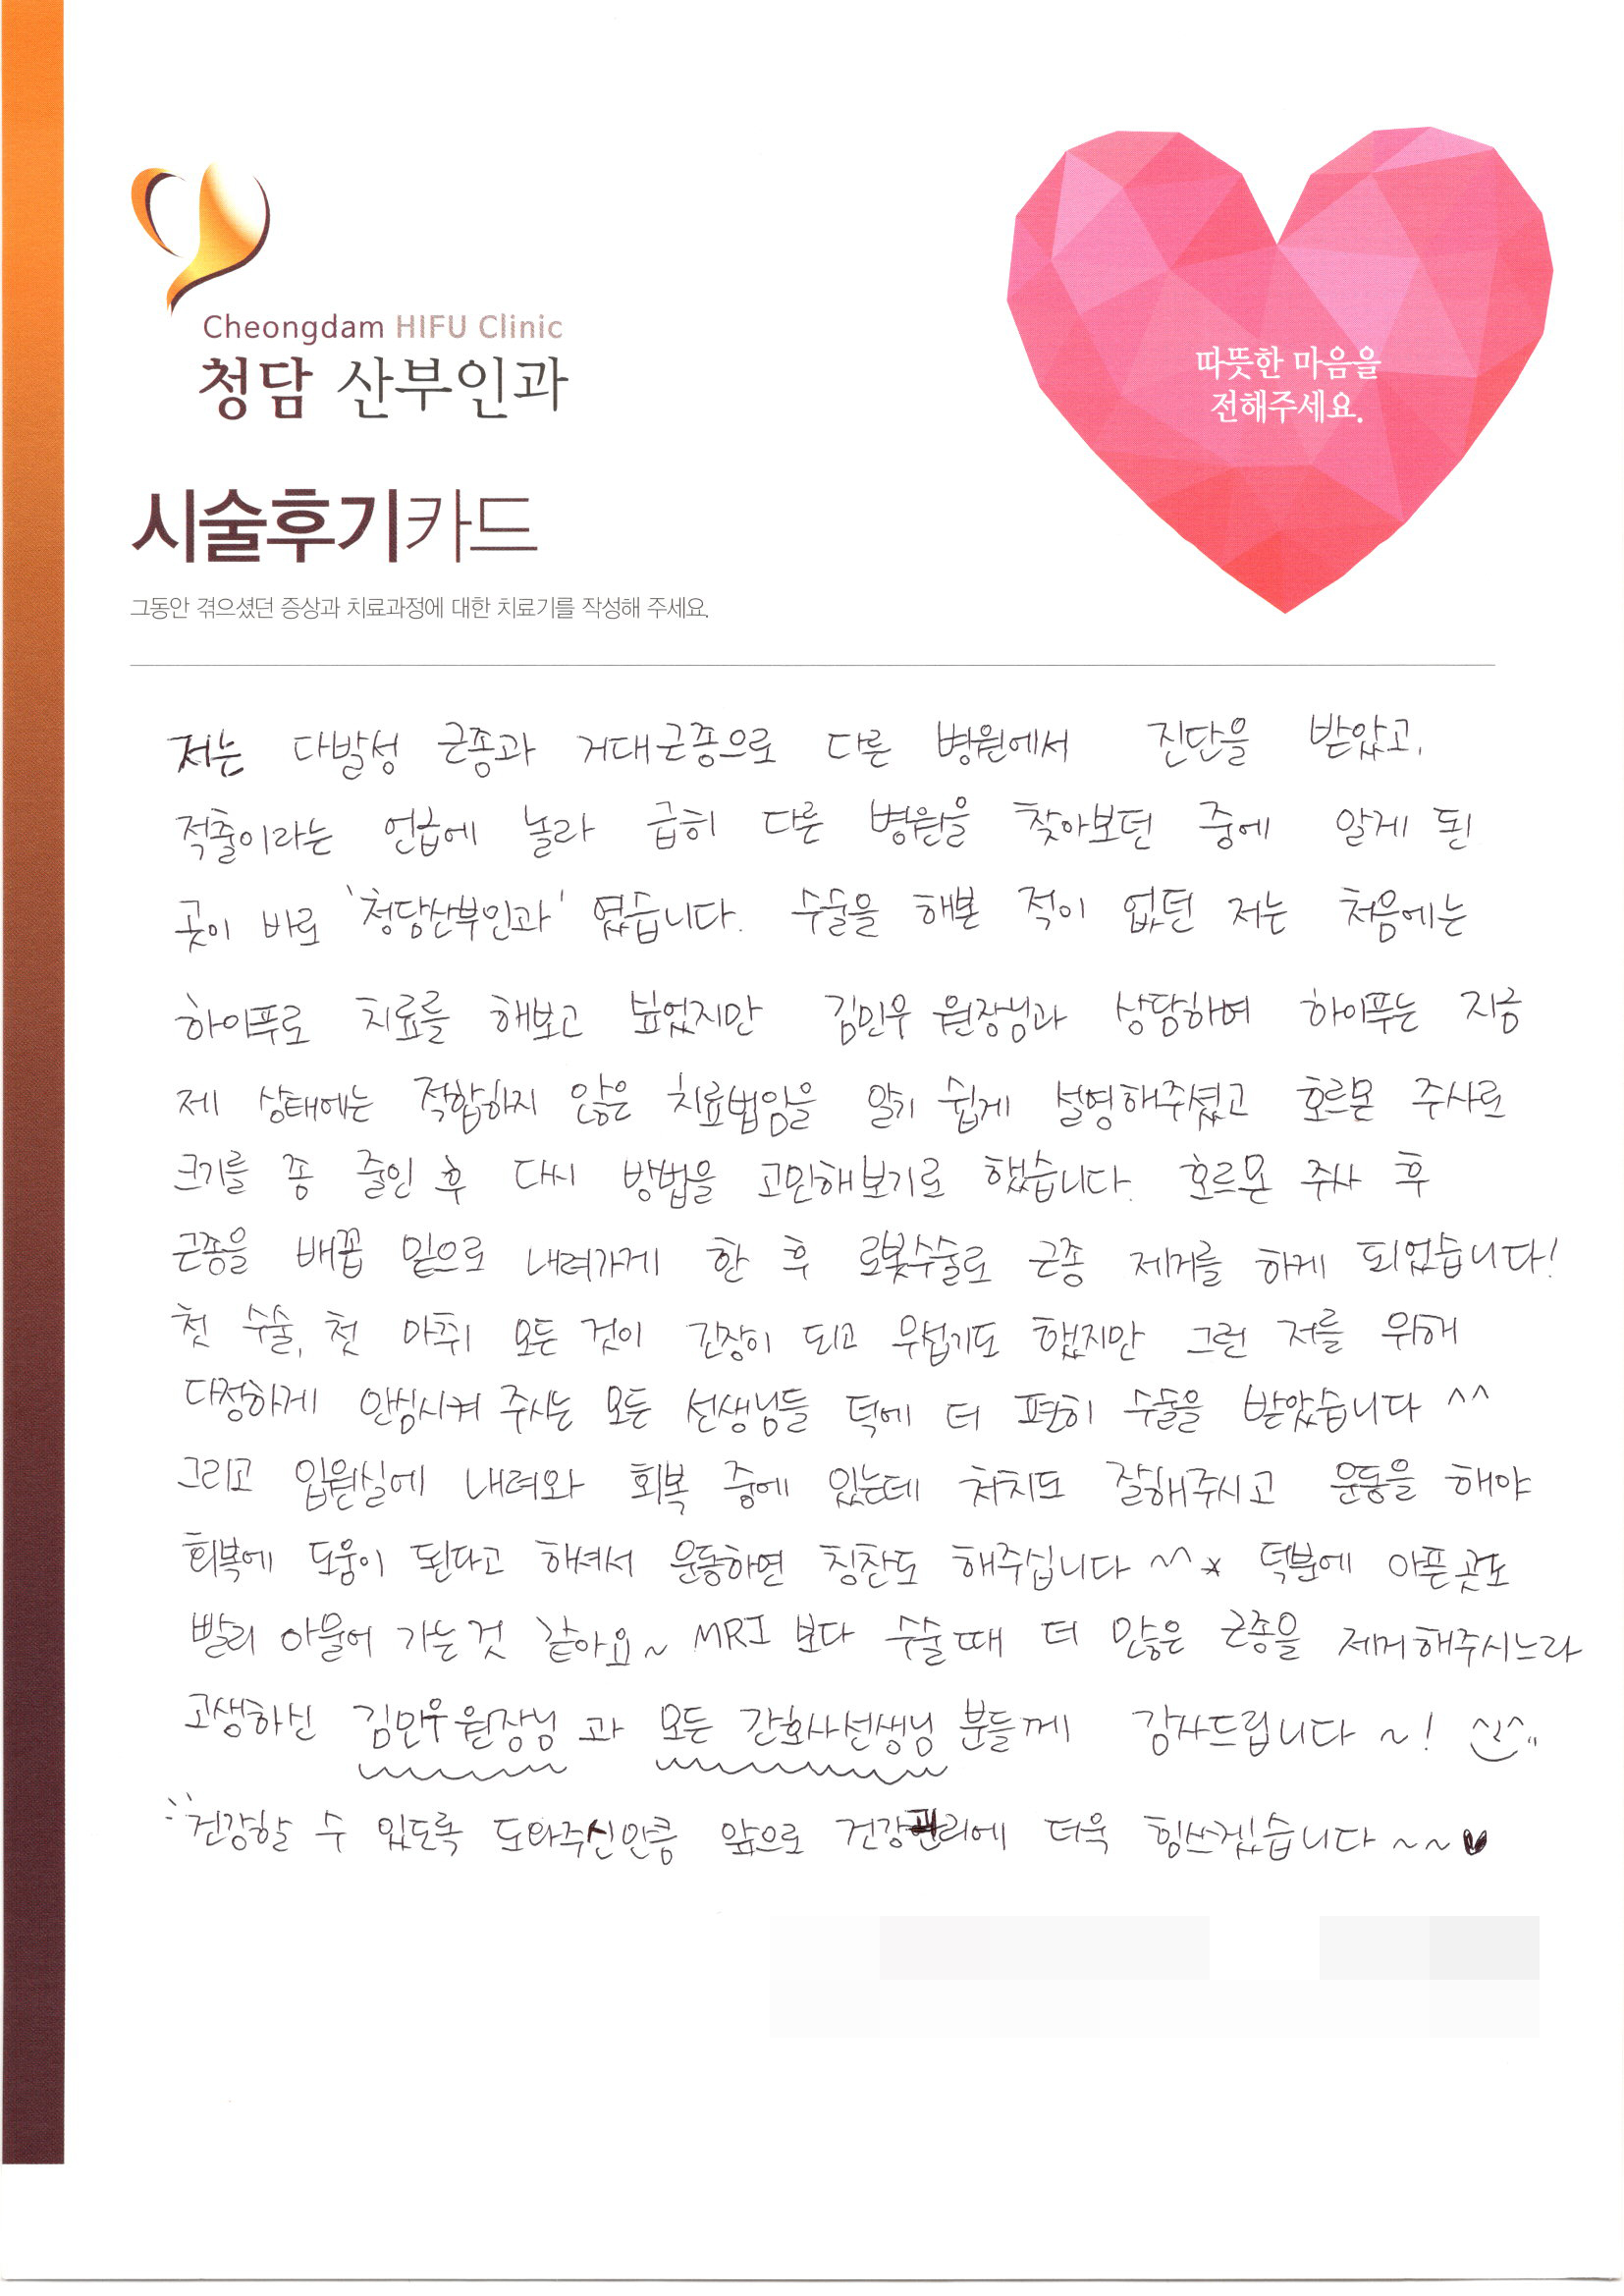 Cheongdam HIFU Clinic
청담 산부인과
따뜻한 마음을
전해주세요.
시술후기카드
그동안 겪으셨던 증상과 치료과정에 대한 치료기를 작성해 주세요.
저는 다발성 근종과 거대근종으로 다른 병원에서 진단을 받았고,
적출이라는 언급에 놀라 급히 다른 병원을 찾아보던 중에 알게 된
곳이 바로 '청담산부인과' 였습니다. 수술을 해본 적이 없던 저는 처음에는
하이푸로 치료를 해보고 싶었지만 김민우 원장님과 상담하여 하이푸는 지금
제 상태에는 적합하지 않은 치료법임을 알기 쉽게 설명해주셨고 호르몬 주사로
크기를 좀 줄인 후 다시 방법을 고민해보기로 했습니다. 호르몬 주사 후
근종을 배꼽 밑으로 내려가게 한 후 로봇수술로 근종 제거를 하게 되었습니다!
첫 수술, 첫 마취 모든 것이 긴장이 되고 무섭기도 했지만 그런 저를 위해
다정하게 안심시켜 주시는 모든 선생님들 덕에 더 편히 수술을 받았습니다 ^^
그리고 입원실에 내려와 회복 중에 있는데 처치도 잘해주시고 운동을 해야
회복에 도움이 된다고 하셔서 운동하면 칭찬도 해주십니다 ^^* 덕분에 아픈곳도
빨리 아물어 가는것 같아요~ MRI 보다 수술때 더 많은 근종을 제거해주시느라
고생하신 김민우원장님 과 모든 간호사선생님 분들께 감사드립니다 ~! ^^
건강할 수 있도록 도와주신만큼 앞으로 건강관리에 더욱 힘쓰겠습니다 ~~♥